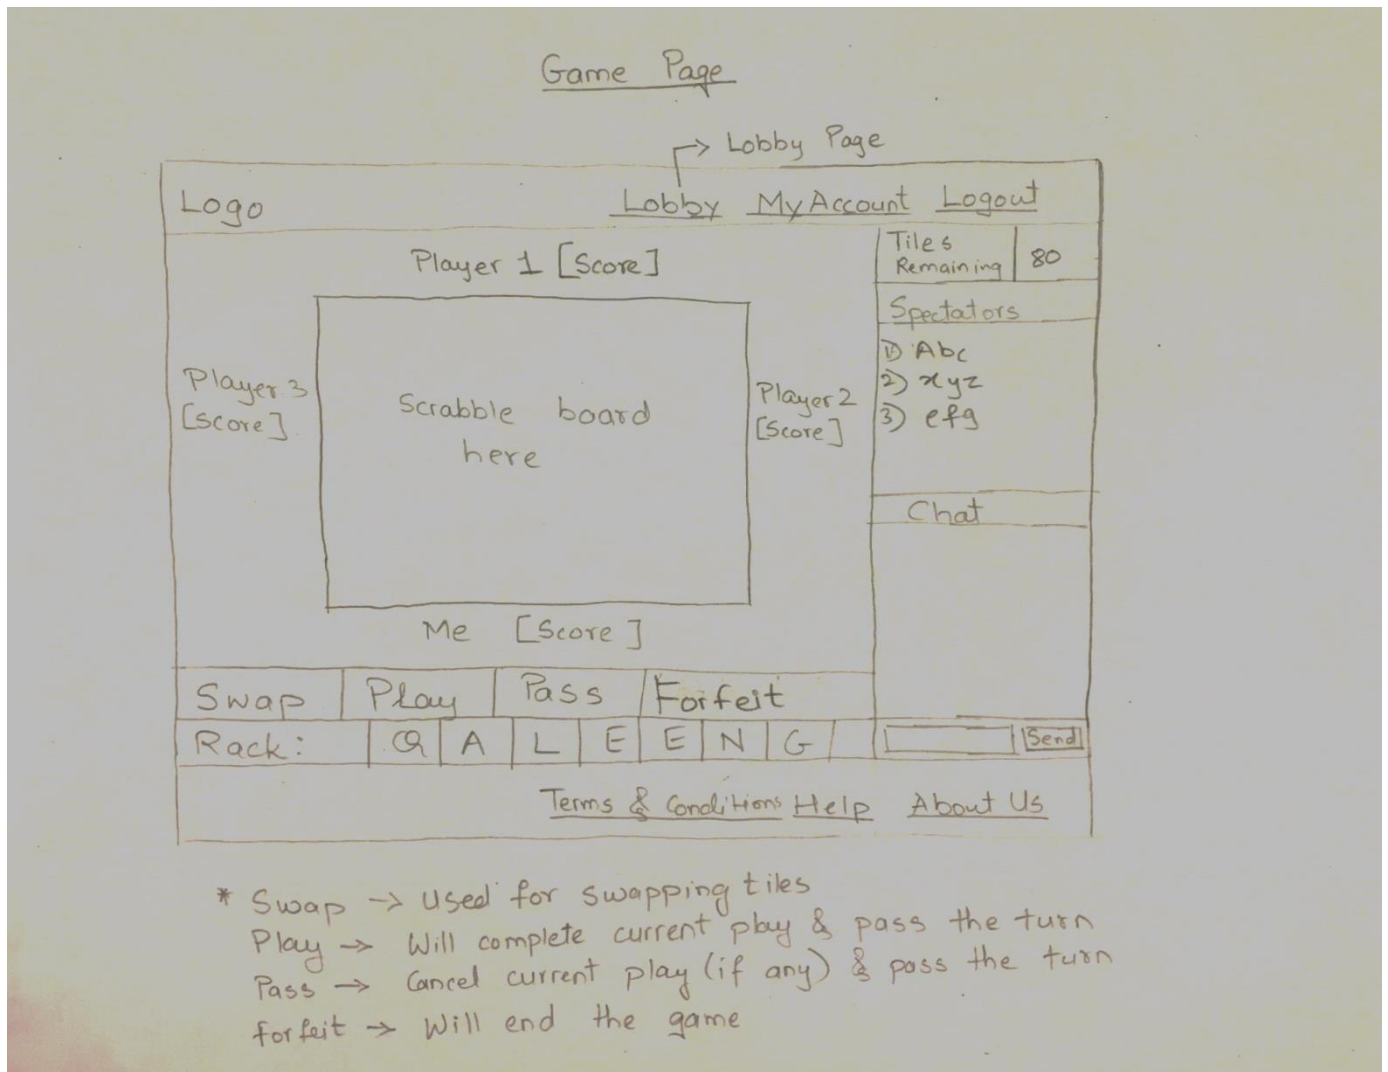 Game Page
Lobby Page
Logo
Lobby My Account Logout
Player 1 [Score]
Tiles
Remaining
80
Spectators
1) Abc
2) xyz
3) efg
Player 3
[Score]
Scrabble board
here
Player 2
[Score]
Chat
Me [Score]
Swap Play Pass Forfeit
Rack: Q A L E E N G
Send
Terms & Conditions Help About Us
* Swap → Used for swapping tiles
Play → Will complete current play & pass the turn
Pass → Cancel current play (if any) & pass the turn
forfeit → Will end the game